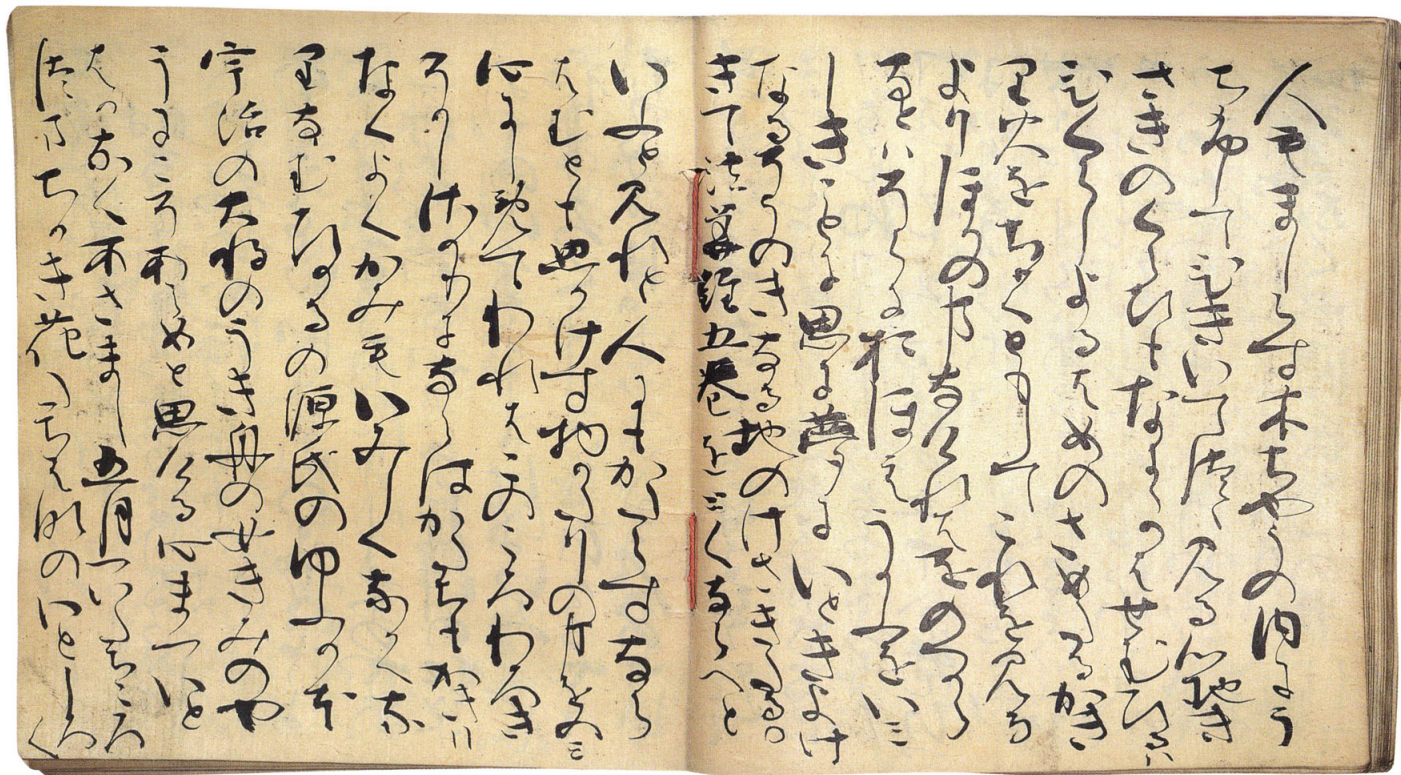 人もましらす木ちやうの内にう
ちふしてひきいてつゝ見る心地き
さきのくらひもなにゝかはせむひるは
ひくらしよるはめのさめたるかき
り火をちかくともしてこれを見る
よりほかの事なけれはをのつから
なとはそらにおほえうかふをいみ
しきことに思に夢にいときよけ
なるそうのきなる地のけさきたるか
きて法華経五巻をとくならへと
いふと見れと人にもかたらすなら
はむとも思かけす物かたりの事をのみ
心にしめてわれはこのころわろき
そかしさかりにならはかたちもかきり
なくよくかみもいみしくなかくな
りなむひかるの源氏のゆふかほ
宇治の大将のうき舟の女きみのや
うにこそあらめと思ける心まついと
はかなくあさまし五月ついたちころ
つまちかき花たちはなのいとしろく